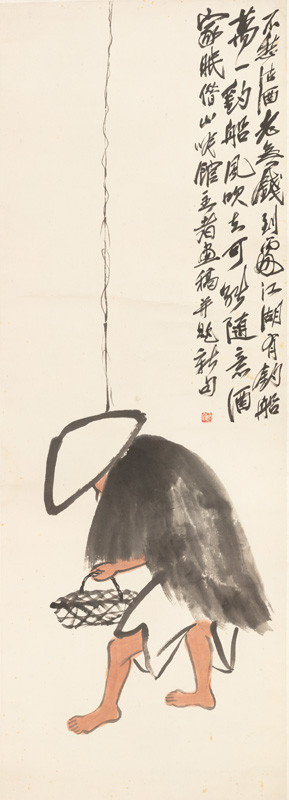 不愁沽酒老無錢到處江湖有釣船
萬一釣船風吹去可能隨意酒
家眠借山吟館主者畫稿并題新句